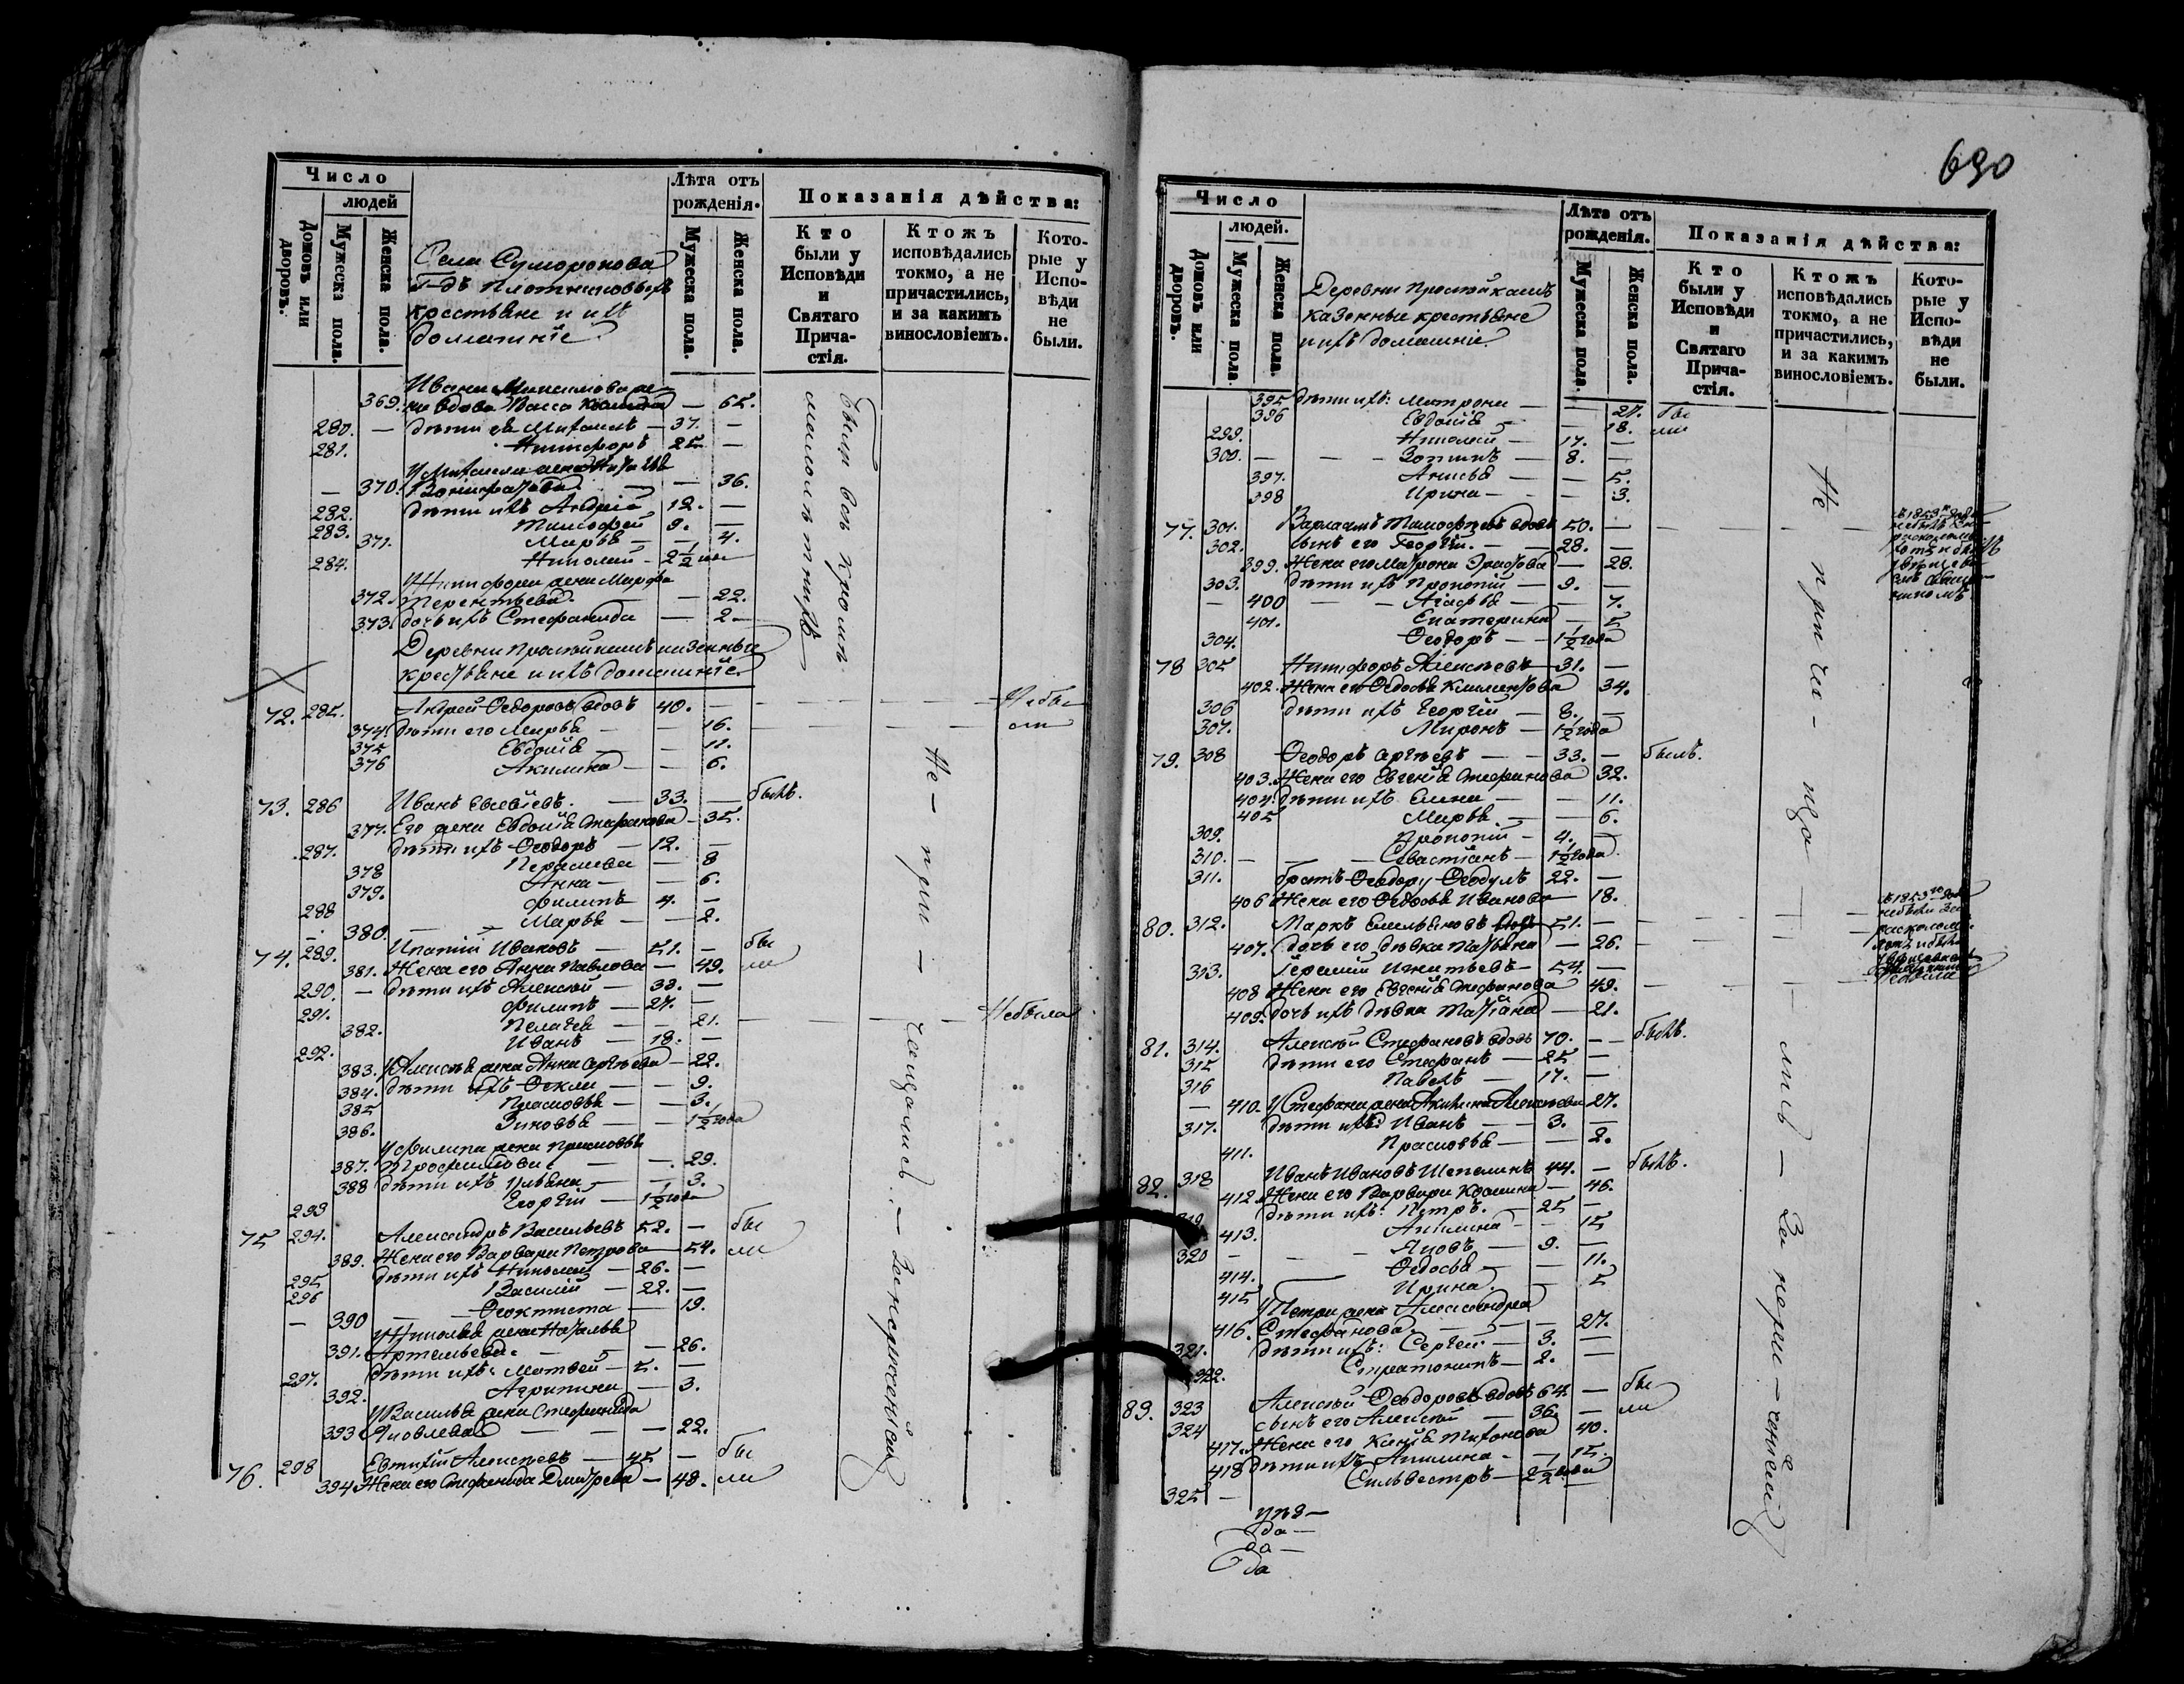 Число
людей
Домовъ или дворовъ.
Мужеска пола.
Женска пола.
Села Сумарокова
Г-дъ Плотниковыхъ
крестьяне и ихъ
домашніе
Лѣта отъ рожденія.
Мужеска пола.
Женска пола.
Показанія дѣйства:
Кто были у Исповѣди и Святаго Причастія.
Ктожъ исповѣдались токмо, а не причастились, и за какимъ винословіемъ.
Которые у Исповѣди не были.
Ивана Максимова же-
369. на вдова Васса — 65.
280. — дѣти ея Михаилъ — 37. —
281. Никифоръ 25 —
У Михаила жена
— 370. — — 36.
282. дѣти ихъ Андрей 12. —
283. Тимофей 9. —
371. Марья — — 4.
284. Николай — 2 1/2 года
У Никифора жена Марфа
372. Терентьева — — 22.
373. дочь ихъ Стефанида — 2 —
были всѣ кромѣ малолѣтнихъ
Деревни казенные
крестьяне и ихъ домашніе
72. 285. Андрей Ѳедоровъ вдовъ 40. — Не бы
374. дѣти его Марья — — 16. — ли
375 Евдокія — — 11.
376 Акилина — — 6.
73. 286 Иванъ — 33. — былъ.
377. Его жена Евдокія Стефанова — 35.
287. дѣти ихъ Ѳеодоръ — 12. —
378 Парасковья — 8
379. Анна — — 6.
288 Филипъ — 4. —
— 380. — Марья — — 2.
74. 289. Ипатій Ивановъ — 51. — бы
381. Жена его Анна Павлова — 49. ли
290. — дѣти ихъ Алексѣй — 30. —
291. Филипъ — 27. —
382. Пелагея — — 21. — Не была
292. Иванъ — 18. —
383. У Алексѣя жена Анна Сергѣева — 22.
384. дѣти ихъ Ѳекла — — 9.
385 Прасковья — — 3.
386. Зиновья — — 1 1/2 года
У Филипа жена Прасковья
387. Трофимова — — 29.
388 дѣти ихъ Ульяна — — 3.
293 Георгій — 1 1/2 года
75 294. Александръ Васильевъ 52. — бы
389. Жена его Варвара Петрова — 54. ли
295 дѣти ихъ Николай — 26. —
296 Василій — 22. —
— 390 — Ѳеоктиста — 19.
У Николая жена Наталья
391. Артемьева — — 26.
297. дѣти ихъ: Матвей — 5. —
392. Агрипина — 3.
У Василья жена Стефанида
393 Яковлева — — 22.
76. 298 Евтихій Алексѣевъ — 45 — бы
394 Жена его Стефанида Дмитрева — 48. ли
Не — при — чащались — За нерачениемъ
690
Число
людей.
Домовъ или дворовъ.
Мужеска пола.
Женска пола.
Деревни
казенные крестьяне
и ихъ домашніе
Лѣта отъ рожденія.
Мужеска пола.
Женска пола.
Показанія дѣйства:
Кто были у Исповѣди и Святаго Причастія.
Ктожъ исповѣдались токмо, а не причастились, и за какимъ винословіемъ.
Которые у Исповѣди не были.
395 дѣти ихъ: Матрона — — 21. бы
396 Евдокія — 18. ли
299. Николай — 17. —
300. — — — Зотикъ — 8. —
397. Анисья — — 5.
398 Ирина — — 3.
77. 301. Варлаамъ Тимофѣевъ вдовъ 50. —
302. сынъ его Георгій. — 28. —
399. Жена его Матрона — 28.
303. дѣти ихъ Прокопій — 9. —
— 400 — — Агафья — — 7.
401. Екатерина — 5
304. Ѳеодоръ — 1 1/2 года
78 305 Никифоръ Алексѣевъ — 31. —
402. Жена его Ѳедосья Климентова 34.
306 дѣти ихъ Георгій — 8. —
307. Миронъ — 1 1/2 года
79. 308 Ѳеодоръ Сергѣевъ — 33. — былъ.
403. Жена его Евгенія Стефанова 32.
404. дѣти ихъ Елена — — 11.
405 Марья — — 6.
309. Прокопій — 4. —
310. — — Савастіанъ — 1 1/2 года
311. братъ Ѳеодору Ѳеодулъ 22. —
406 Жена его Ѳедосья Иванова — 18.
80. 312. Маркъ Емельяновъ 51. —
407. дочь его дѣвка Татьяна — 26. —
313. Герасимъ Игнатьевъ — 54. —
408 Жена его Евгенія Стефанова 49. —
409. дочь ихъ дѣвка Татіана — 21.
81. 314. Алексѣй Стефановъ вдовъ 70. — былъ.
315 дѣти его Стефанъ — 25 —
316 Павелъ — 17. —
— 410. У Стефана жена Акилина Алексѣева 27.
317. дѣти ихъ Иванъ — 3. —
411. Прасковья — — 2.
82. 318 Иванъ Ивановъ 44. — былъ.
412. Жена его Варвара Козмина — 46.
319 дѣти ихъ: Петръ. — 25 —
413. Акилина — — 15
320 — Яковъ — 9. —
414. Ѳедосья — — 11.
415 Ирина. — 5
У Петра жена Александра
416. Стефанова — — 27.
321. дѣти ихъ: Сергей — 3. —
322. Стратоникъ — 2. —
83. 323 Алексѣй Ѳеодоровъ вдовъ 64. — бы
324 сынъ его Алексѣй — 36. — ли
417. Жена его Ксенія Тихонова 40.
418 дѣти ихъ Акилина — — 15.
325 — Сильвестръ — 2 1/2 года
Не прича — ща — лись — За нерачениемъ
уѣз —
да —
да —
да